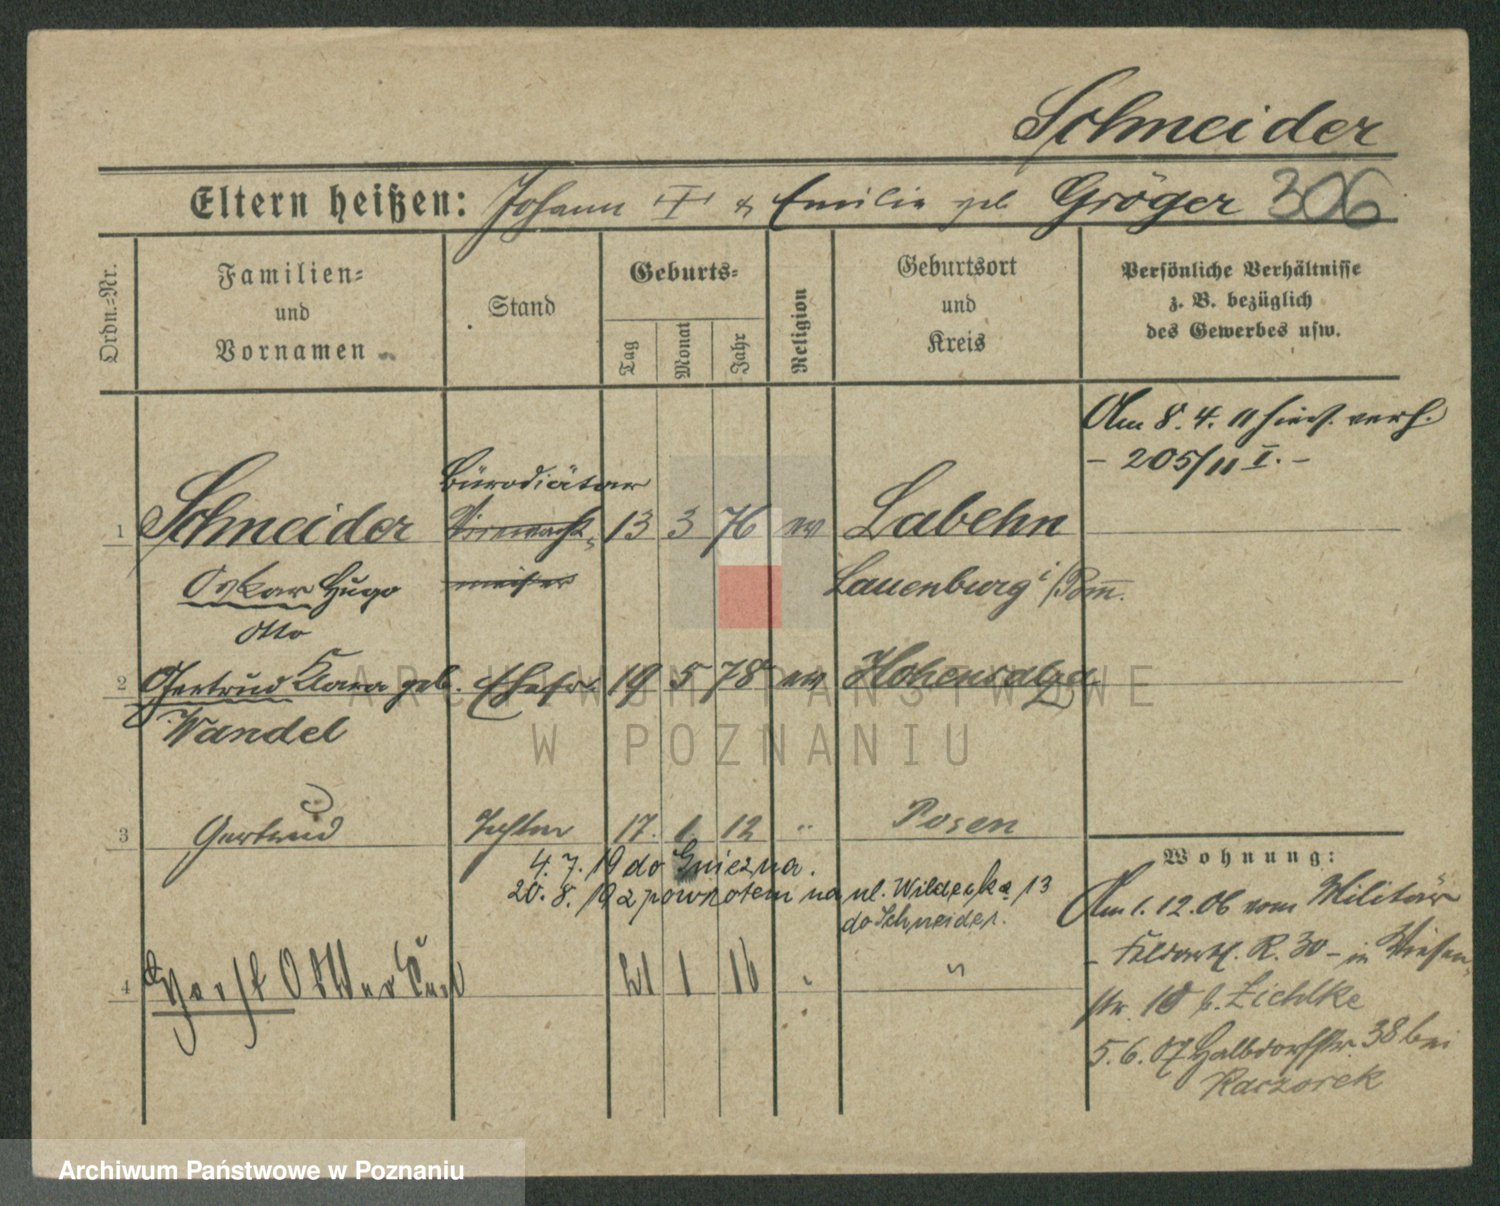 Schneider
Eltern heißen: Johann I & Emilie geb Gröger 306
Ordn.=Nr.
Familien=
und
Vornamen
Stand
Geburts=
Tag
Monat
Jahr
Religion
Geburtsort
und
Kreis
Persönliche Verhältnisse
z. B. bezüglich
des Gewerbes usw.
Am 8. 4. 11 hies. verh.
- 205/11 I. -
Bürodiätar
1 Schneider 13 3 76 ev Labehn
Oskar Hugo meister Lauenburg i/Pom.
Otto
2 Gertrud Klara geb. Ehefr. 19 5 78 ev Hohensalza
Wandel
3 Gertrud Tochter 17. 1. 12 " Posen
4. 7. 19 do Gniezna.
20. 8. 19 z powrotem na ul. Wildecka 13
do Schneider.
4 Horst 21 1 16 " "
Wohnung:
Am 1. 12. 06 vom Militär
- Feldartl. R. 30 - in Wiesen
str. 18 b. Zichlke
5. 6. 07 Halbdorfstr. 38 bei
Kaczorek
ARCHIWUM PAŃSTWOWE
W POZNANIU
Archiwum Państwowe w Poznaniu